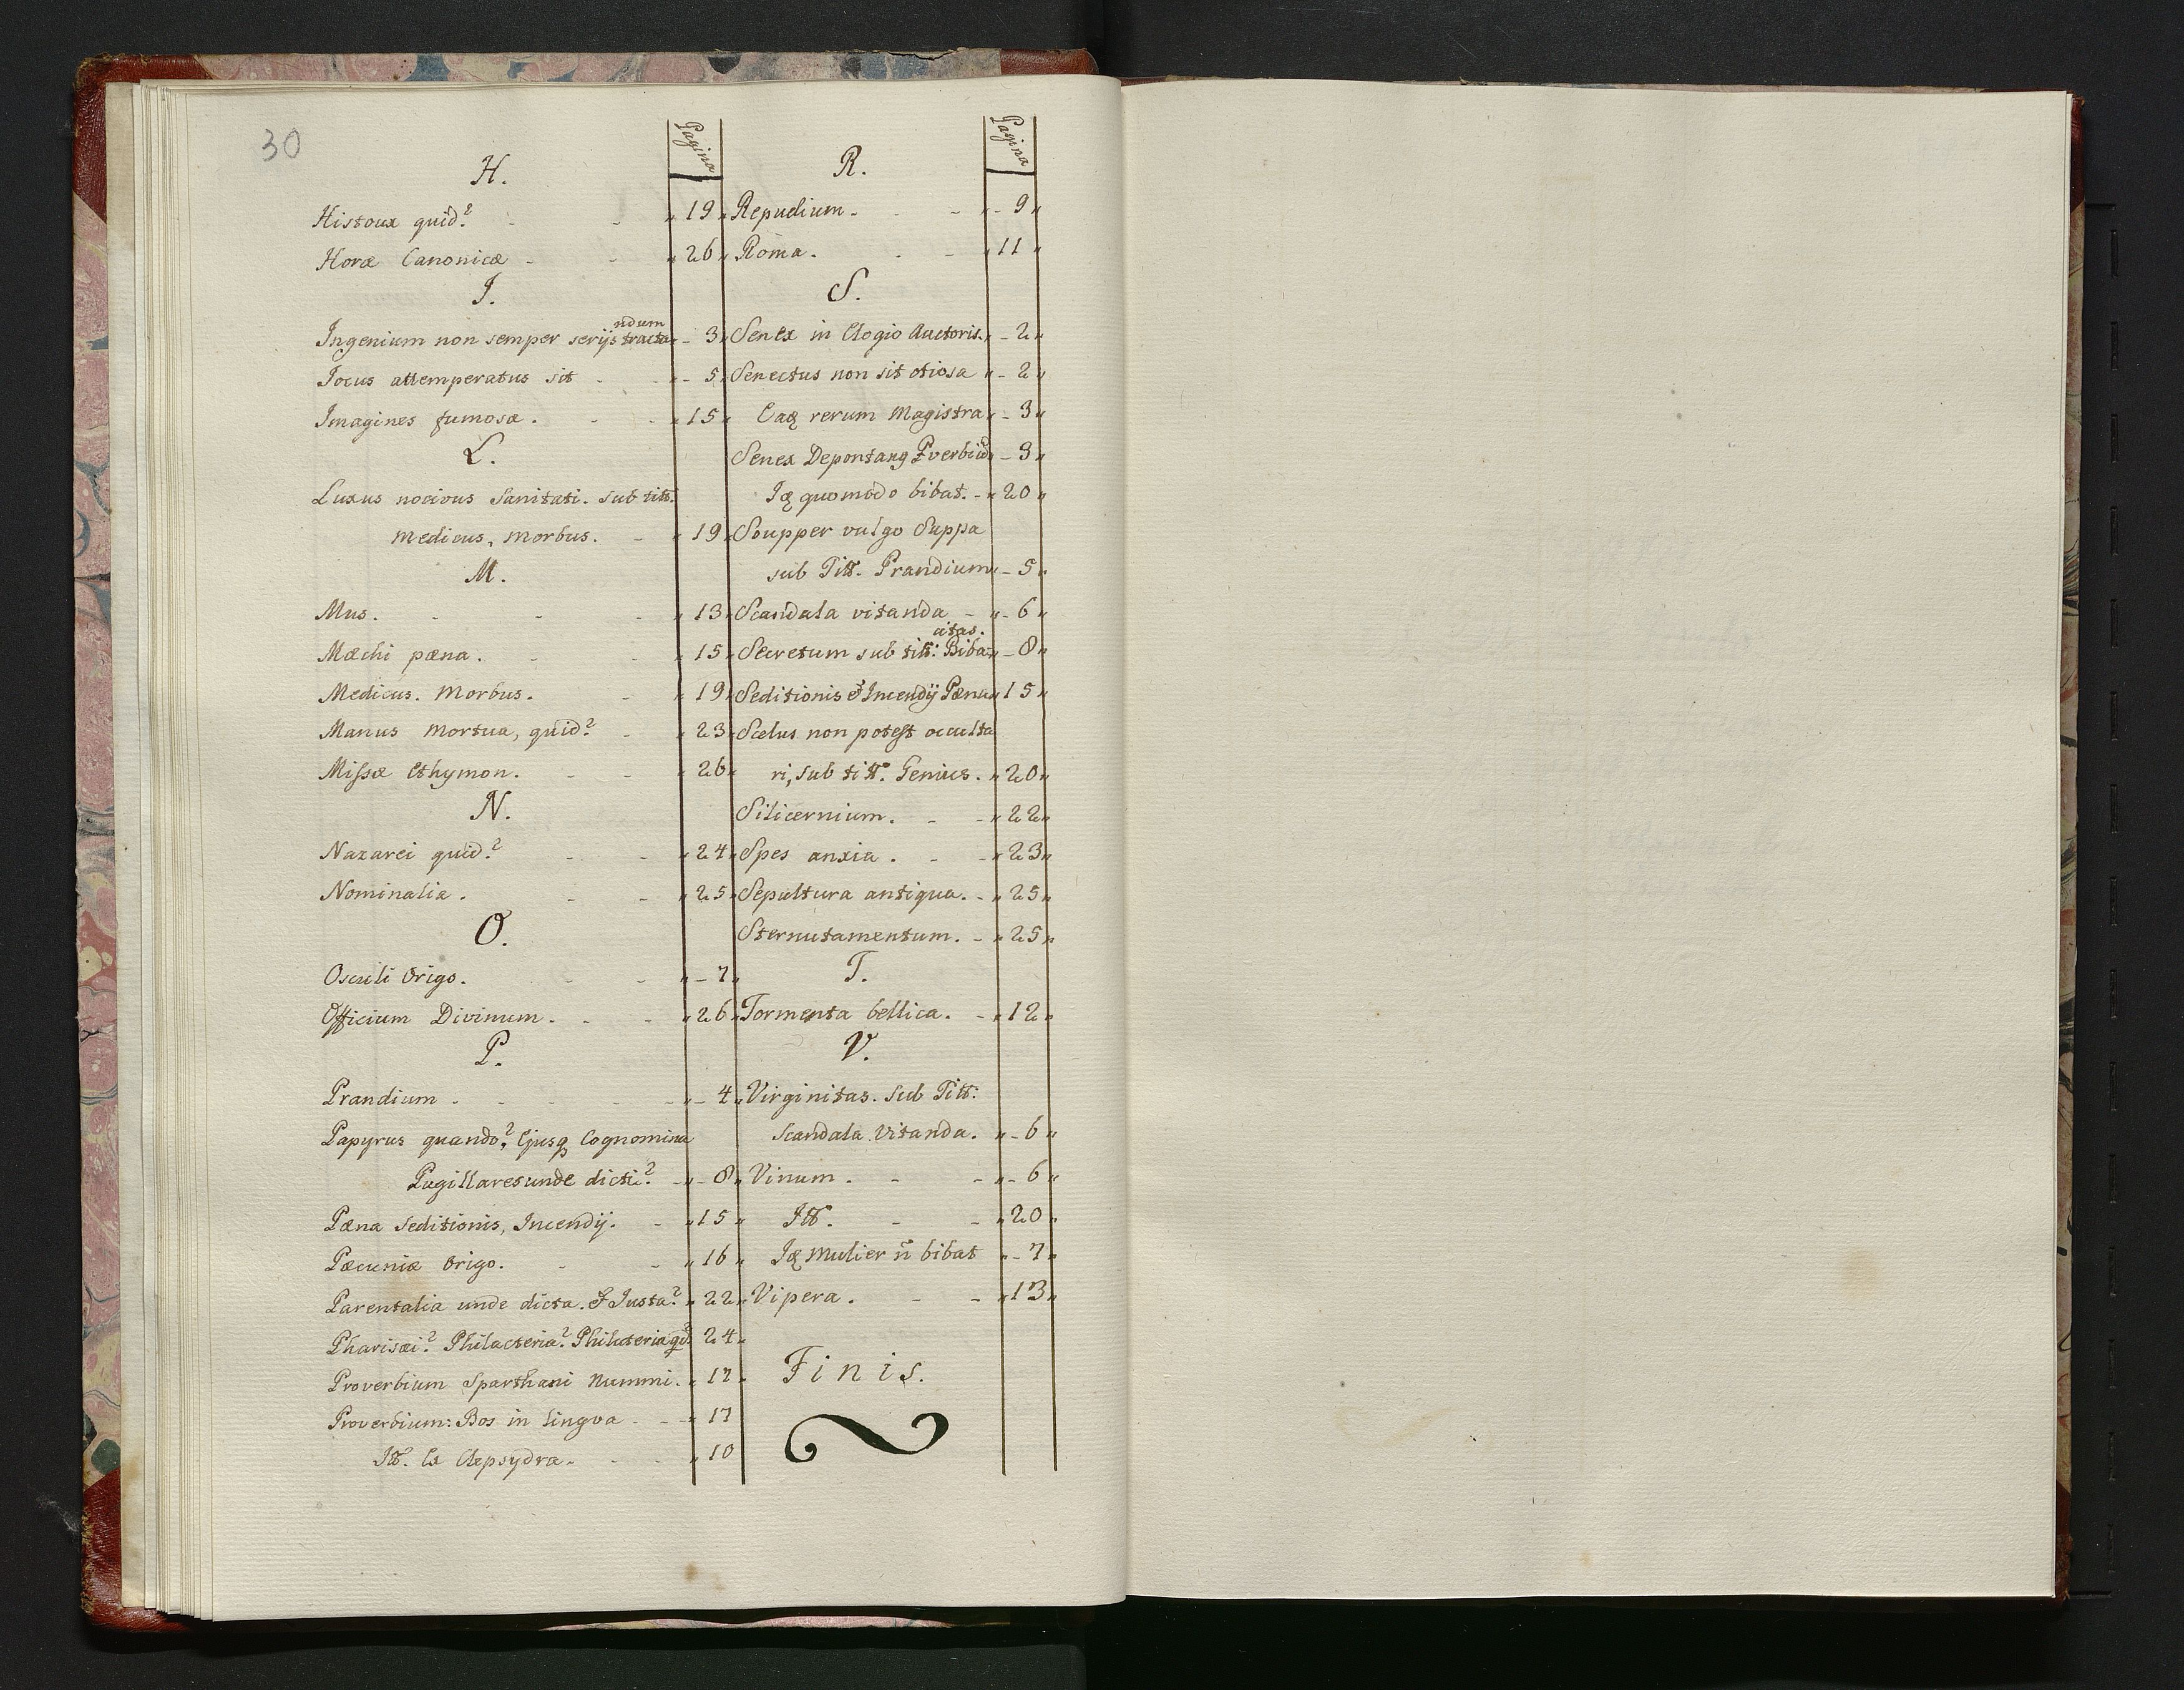 30
Pagina
H.
Histoux quid? - - „ 19 „
Horæ Canonicæ - - „ 26 „
I.
ndum
Ingenium non semper serijs tracta „ - 3 „
Jocus attemperatus sit - - „ - 5 „
Imagines fumosæ. - - „ 15 „
L.
Luxus nocivus Sanitati. sub titt.
Medicus, Morbus. - „ 19 „
M.
Mus. - - - „ 13 „
Mæchi pæna. - - „ 15 „
Medicus. Morbus. - „ 19 „
Manus Mortua, quid? - „ 23 „
Missæ Ethymon. - - „ 26 „
N.
Nazarei quid? - - „ 24 „
Nominalia. - - „ 25 „
O.
Osculi Origo. - - „ - 7 „
Officium Divinum. - - „ 26 „
P.
Prandium - - - - - „ - 4 „
Papyrus quando? Ejusq Cognomina
Pugillares unde dicti? - „ - 8 „
Pæna Seditionis, Incendij. - „ 15 „
Pæcuniæ Origo. - - „ 16 „
Parentalia unde dicta. & Justa? „ 22 „
Pharisæi? Philacteria? Philateria qd? 24 „
Proverbium Sparthani Nummi. „ 17 „
Proverbium: Bos in lingva - - „ 17
Itt. Ex Clepsydra. - - „ 10
Pagina
R.
Repudium. - - „ - 9 „
Roma. - - „ 11 „
S.
Senex in Elogio Auctoris. „ - 2 „
Senectus non sit otiosa „ - 2 „
Eaq rerum Magistra „ - 3 „
Senex Depontang Pverbiū „ - 3 „
Iq quomodo bibat. - „ 20 „
Soupper vulgo Suppa
sub Titt. Prandium „ - 5 „
Scandala vitanda - „ - 6 „
citas.
Secretum sub titt: Biba= „ - 8 „
Seditionis & Incendij Pæna „ 15 „
Scelus non potest occulta
ri, sub titt. Genius. „ 20 „
Silicernium. - - „ 22 „
Spes anxia. - - „ 23 „
Sepultura antiqua. - „ 25 „
Sternutamentum. - „ 25 „
T.
Tormenta bellica. - „ 12 „
V.
Virginitas. Sub Titt:
Scandala Vitanda. „ - 6 „
Vinum. - - „ - 6 „
Itt. - - „ 20 „
Iq Mulier ñ bibat „ - 7 „
Vipera. - - „ 13 „
Finis.